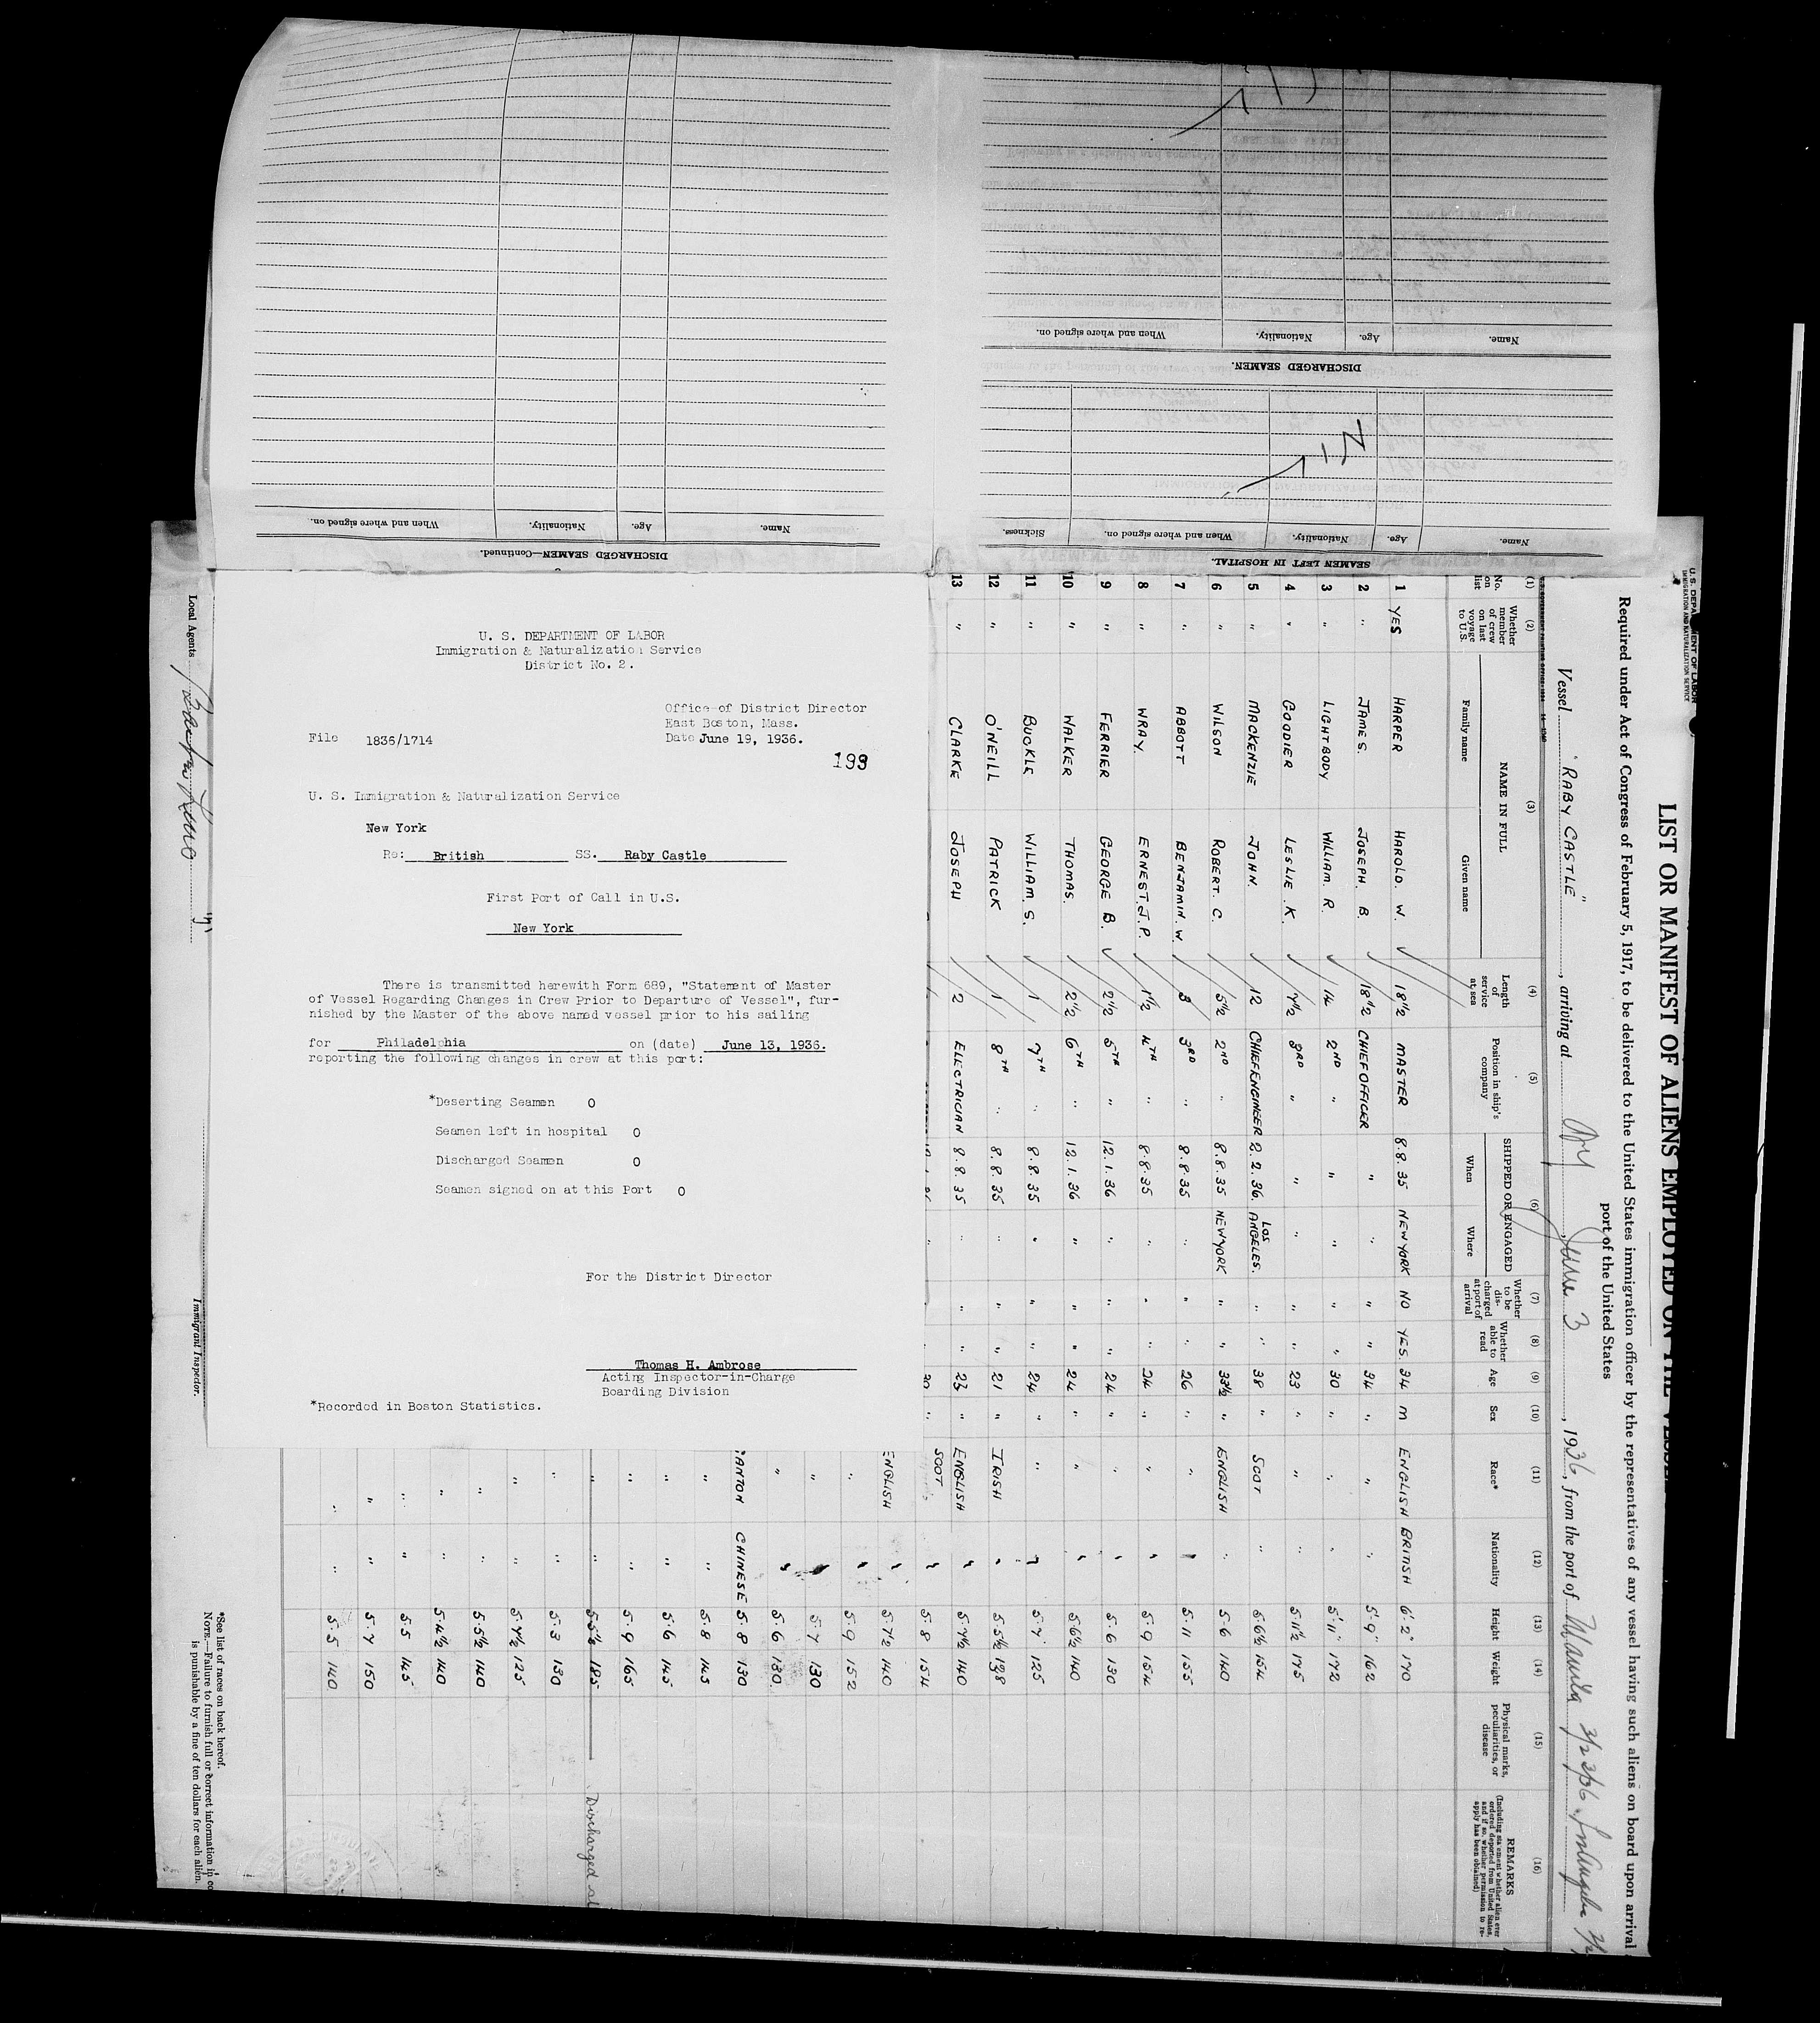 U. S. DEPARTMENT OF LABOR
Immigration & Naturalization Service
District No. 2.
Office of District Director
East Boston, Mass.
File 1836/1714
Date June 19, 1936.
193
U. S. Immigration & Naturalization Service
New York
Re: British SS. Raby Castle
First Port of Call in U.S.
New York
There is transmitted herewith Form 689, "Statement of Master
of Vessel Regarding Changes in Crew Prior to Departure of Vessel", fur-
nished by the Master of the above named vessel prior to his sailing
for Philadelphia on (date) June 13, 1936.
reporting the following changes in crew at this port:
*Deserting Seamen 0
Seamen left in hospital 0
Discharged Seamen 0
Seamen signed on at this Port 0
For the District Director
Thomas H. Ambrose
Acting Inspector-in-Charge
Boarding Division
*Recorded in Boston Statistics.
SEAMEN LEFT IN HOSPITAL.
Name. Age. Nationality. When and where signed on. Sickness.
DISCHARGED SEAMEN.
Name. Age. Nationality. When and where signed on.
DISCHARGED SEAMEN—Continued.
Name. Age. Nationality. When and where signed on.
IMMIGRATION AND NATURALIZATION SERVICE
LIST OR MANIFEST OF ALIENS EMPLOYED ON THE VESSEL
Required under Act of Congress of February 5, 1917, to be delivered to the United States immigration officer by the representatives of any vessel having such aliens on board upon arrival
port of the United States
Vessel "RABY CASTLE", arriving at NY, June 3, 1936, from the port of Manila
(1) (2) (3) (4) (5) (6) (7) (8) (9) (10) (11) (12) (13) (14) (15) (16)
No. on list
Whether member of crew on last voyage to U.S.
NAME IN FULL
Family name Given name
Length of service at sea
Position in ship's company
SHIPPED OR ENGAGED
When Where
Whether to be discharged at port of arrival
Whether able to read
Age
Sex
Race*
Nationality
Height
Weight
Physical marks, peculiarities, or disease
REMARKS
1 YES HARPER HAROLD. W. 18½ MASTER 8.8.35 NEW YORK NO YES. 34 M ENGLISH BRITISH 6'.2" 170
2 " JAMES. JOSEPH. B. 18½ CHIEF OFFICER " " " " 34 " " " 5'.9" 162
3 " LIGHTBODY WILLIAM. R. 14 2ND " " " " " 30 " " " 5'.11" 172
4 " GOODIER LESLIE. K. 7½ 3RD " " " " " 23 " " " 5.11½ 175
5 " MACKENZIE JOHN. 12 CHIEF ENGINEER 2.2.36. LOS ANGELES. " " 38 " SCOT " 5.6½ 154
6 " WILSON ROBERT. C. 5½ 2ND " 8.8.35 NEW YORK " " 33½ " ENGLISH " 5.6 140
7 " ABBOTT BENJAMIN. W. 3 3RD " 8.8.35 " " " 26 " " " 5.11 155
8 " WRAY. ERNEST. J. P. 1½ 4TH " 8.8.35 " " " 24 " " " 5.9 154
9 " FERRIER GEORGE B. 2½ 5TH " 12.1.36 " " " 24 " " " 5.6 130
10 " WALKER THOMAS. 2½ 6TH " 12.1.36 " " " 24 " " " 5.6½ 140
11 " BUCKLE WILLIAM S. 1 7TH " 8.8.35 " " " 24 " " " 5.7 125
12 " O'NEILL PATRICK 1 8TH " 8.8.35 " " " 21 " IRISH " 5.5½ 138
13 " CLARKE JOSEPH 2 ELECTRICIAN 8.8.35 " " " 23 " ENGLISH " 5.7½ 140
SCOT " 5.8 154
ENGLISH " 5.7½ 140
" " 5.9 152
" " 5.7 130
" " 5.6 130
CHINESE 5.8 130
" " 5.8 145
" " 5.6 145
" " 5.9 165
" " 5.5½ 185 Discharged at
" " 5.3 130
" " 5.7½ 125
" " 5.5½ 140
" " 5.4½ 140
" " 5.5 145
" " 5.7 150
" " 5.5 140
Local Agents
Immigrant Inspector.
*See list of races on back hereof.
NOTE.—Failure to furnish full or correct information in
is punishable by a fine of ten dollars for each alien.